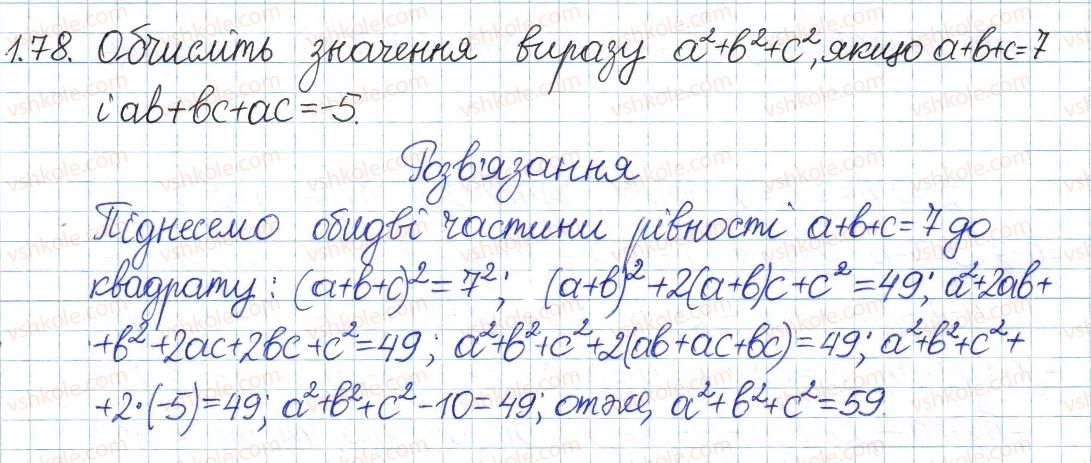 1.78. Обчисліть значення виразу a²+b²+c², якщо a+b+c=7
і ab+bc+ac=-5.
Розв'язання
Піднесемо обидві частини рівності a+b+c=7 до
квадрату: (a+b+c)²=7²; (a+b)²+2(a+b)c+c²=49; a²+2ab+
+b²+2ac+2bc+c²=49; a²+b²+c²+2(ab+ac+bc)=49; a²+b²+c²+
+2·(-5)=49; a²+b²+c²-10=49; отже, a²+b²+c²=59.